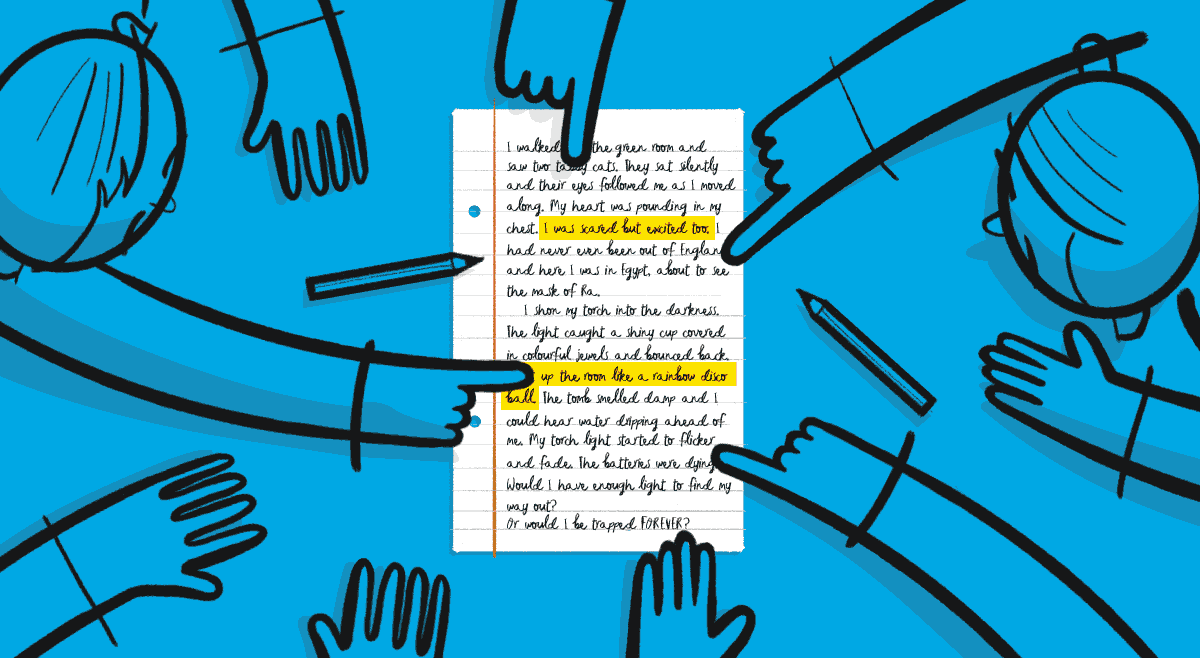 I walked the green room and
saw two tabby cats. They sat silently
and their eyes followed me as I moved
along. My heart was pounding in my
chest. I was scared but excited too. I
had never even been out of England
and here I was in Egypt, about to see
the mask of Ra.
I shon my torch into the darkness.
The light caught a shiny cup covered
in colourful jewels and bounced back.
up the room like a rainbow disco
ball. The tomb smelled damp and I
could hear water dripping ahead of
me. My torch light started to flicker
and fade. The batteries were dying.
Would I have enough light to find my
way out?
Or would I be trapped FOREVER?